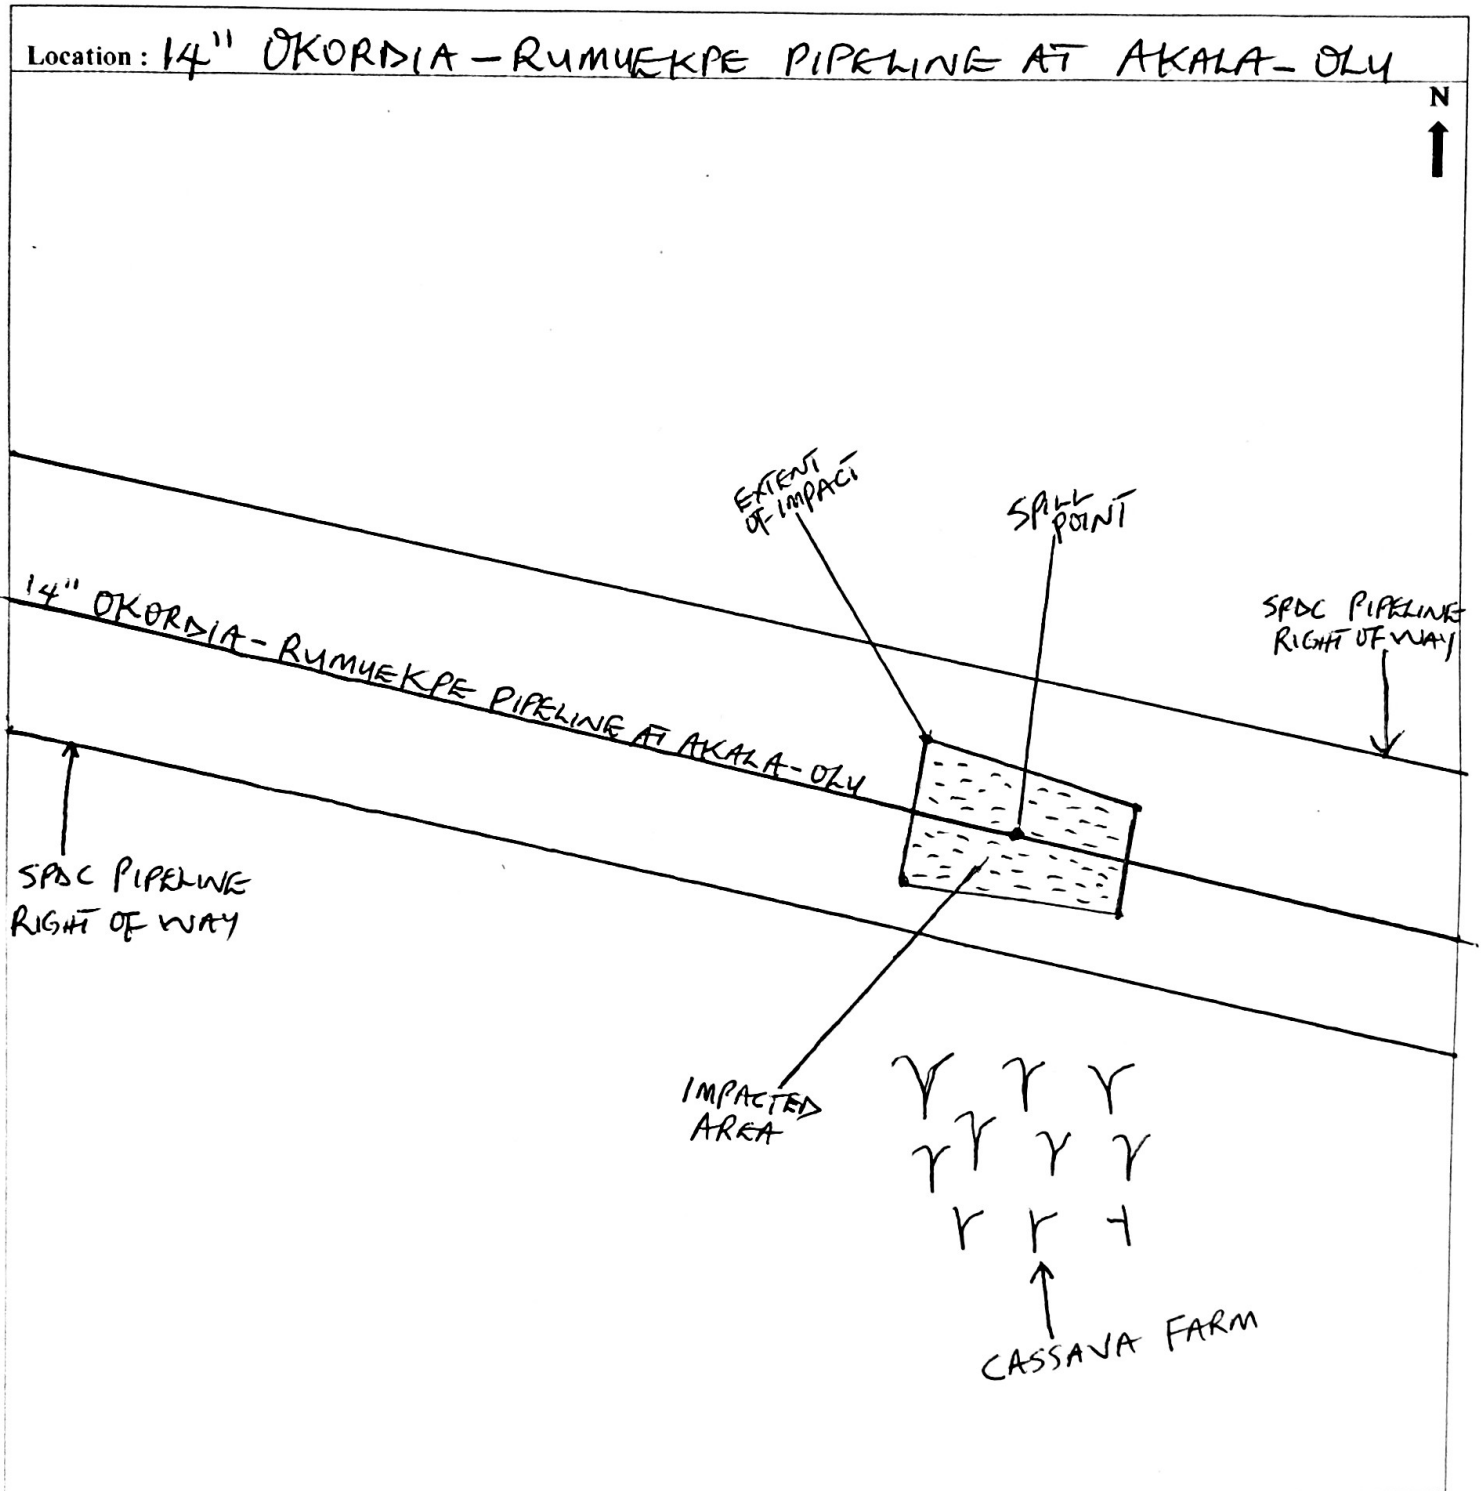 Location : 14" OKORDIA - RUMUEKPE PIPELINE AT AKALA - OLU
N
EXTENT
OF IMPACT
SPILL
POINT
SPDC PIPELINE
RIGHT OF WAY
14" OKORDIA - RUMUEKPE PIPELINE AT AKALA - OLU
SPDC PIPELINE
RIGHT OF WAY
IMPACTED
AREA
CASSAVA FARM